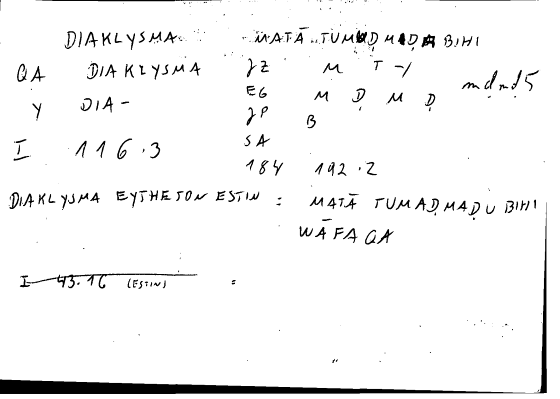 DIAKLYSMA MATĀ TUMAḌMAḌA BIHI
QA DIAKLYSMA JZ M T -Y
Y DIA- EG M Ḍ M Ḍ mḍmḍ5
JP B
I 116.3 SA
184 192.2
DIAKLYSMA EYTHETON ESTIN = MATĀ TUMAḌMAḌU BIHI
WĀFAQA
I 43.16 (ESTIN) =